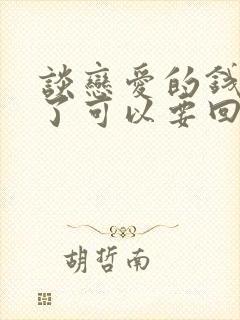 談戀愛的錢
了可以要回
胡哲南